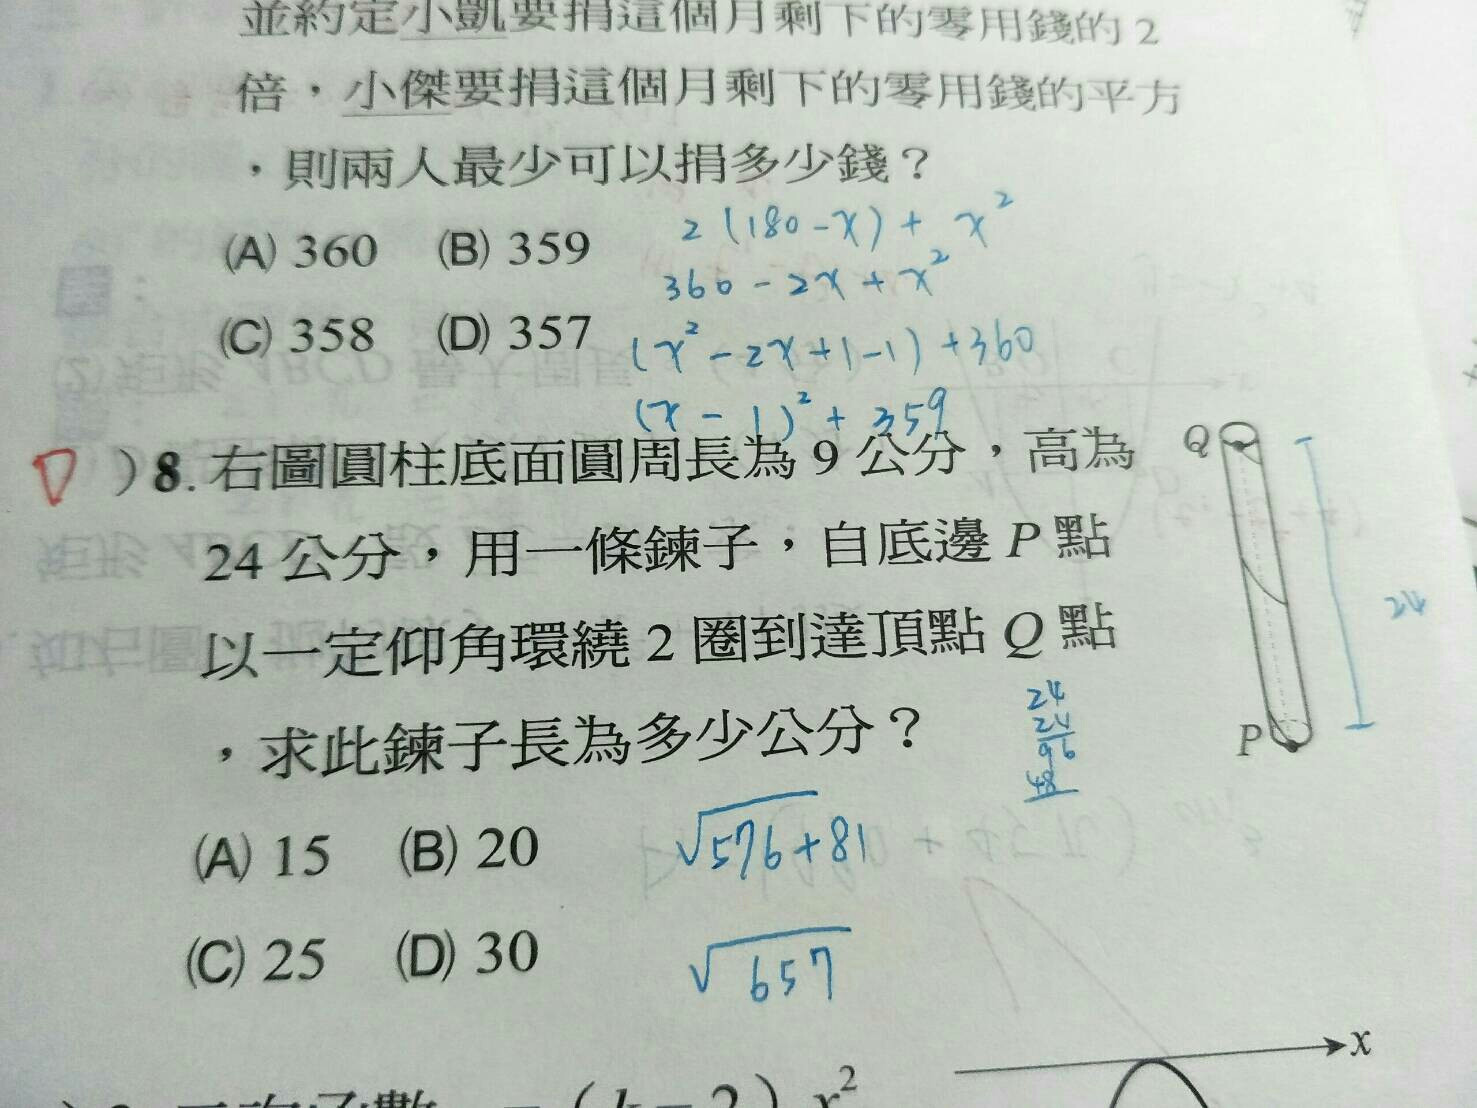 並約定小凱要捐這個月剩下的零用錢的 2
倍，小傑要捐這個月剩下的零用錢的平方
，則兩人最少可以捐多少錢？
(A) 360 (B) 359
(C) 358 (D) 357
2(180-x)+x²
360-2x+x²
(x²-2x+1-1)+360
(x-1)²+359
D )8. 右圖圓柱底面圓周長為 9 公分，高為
24 公分，用一條鍊子，自底邊 P 點
以一定仰角環繞 2 圈到達頂點 Q 點
，求此鍊子長為多少公分？
(A) 15 (B) 20
(C) 25 (D) 30
Q
24
P
24
24
96
48
√576+81
√657
x
(k-2) x²